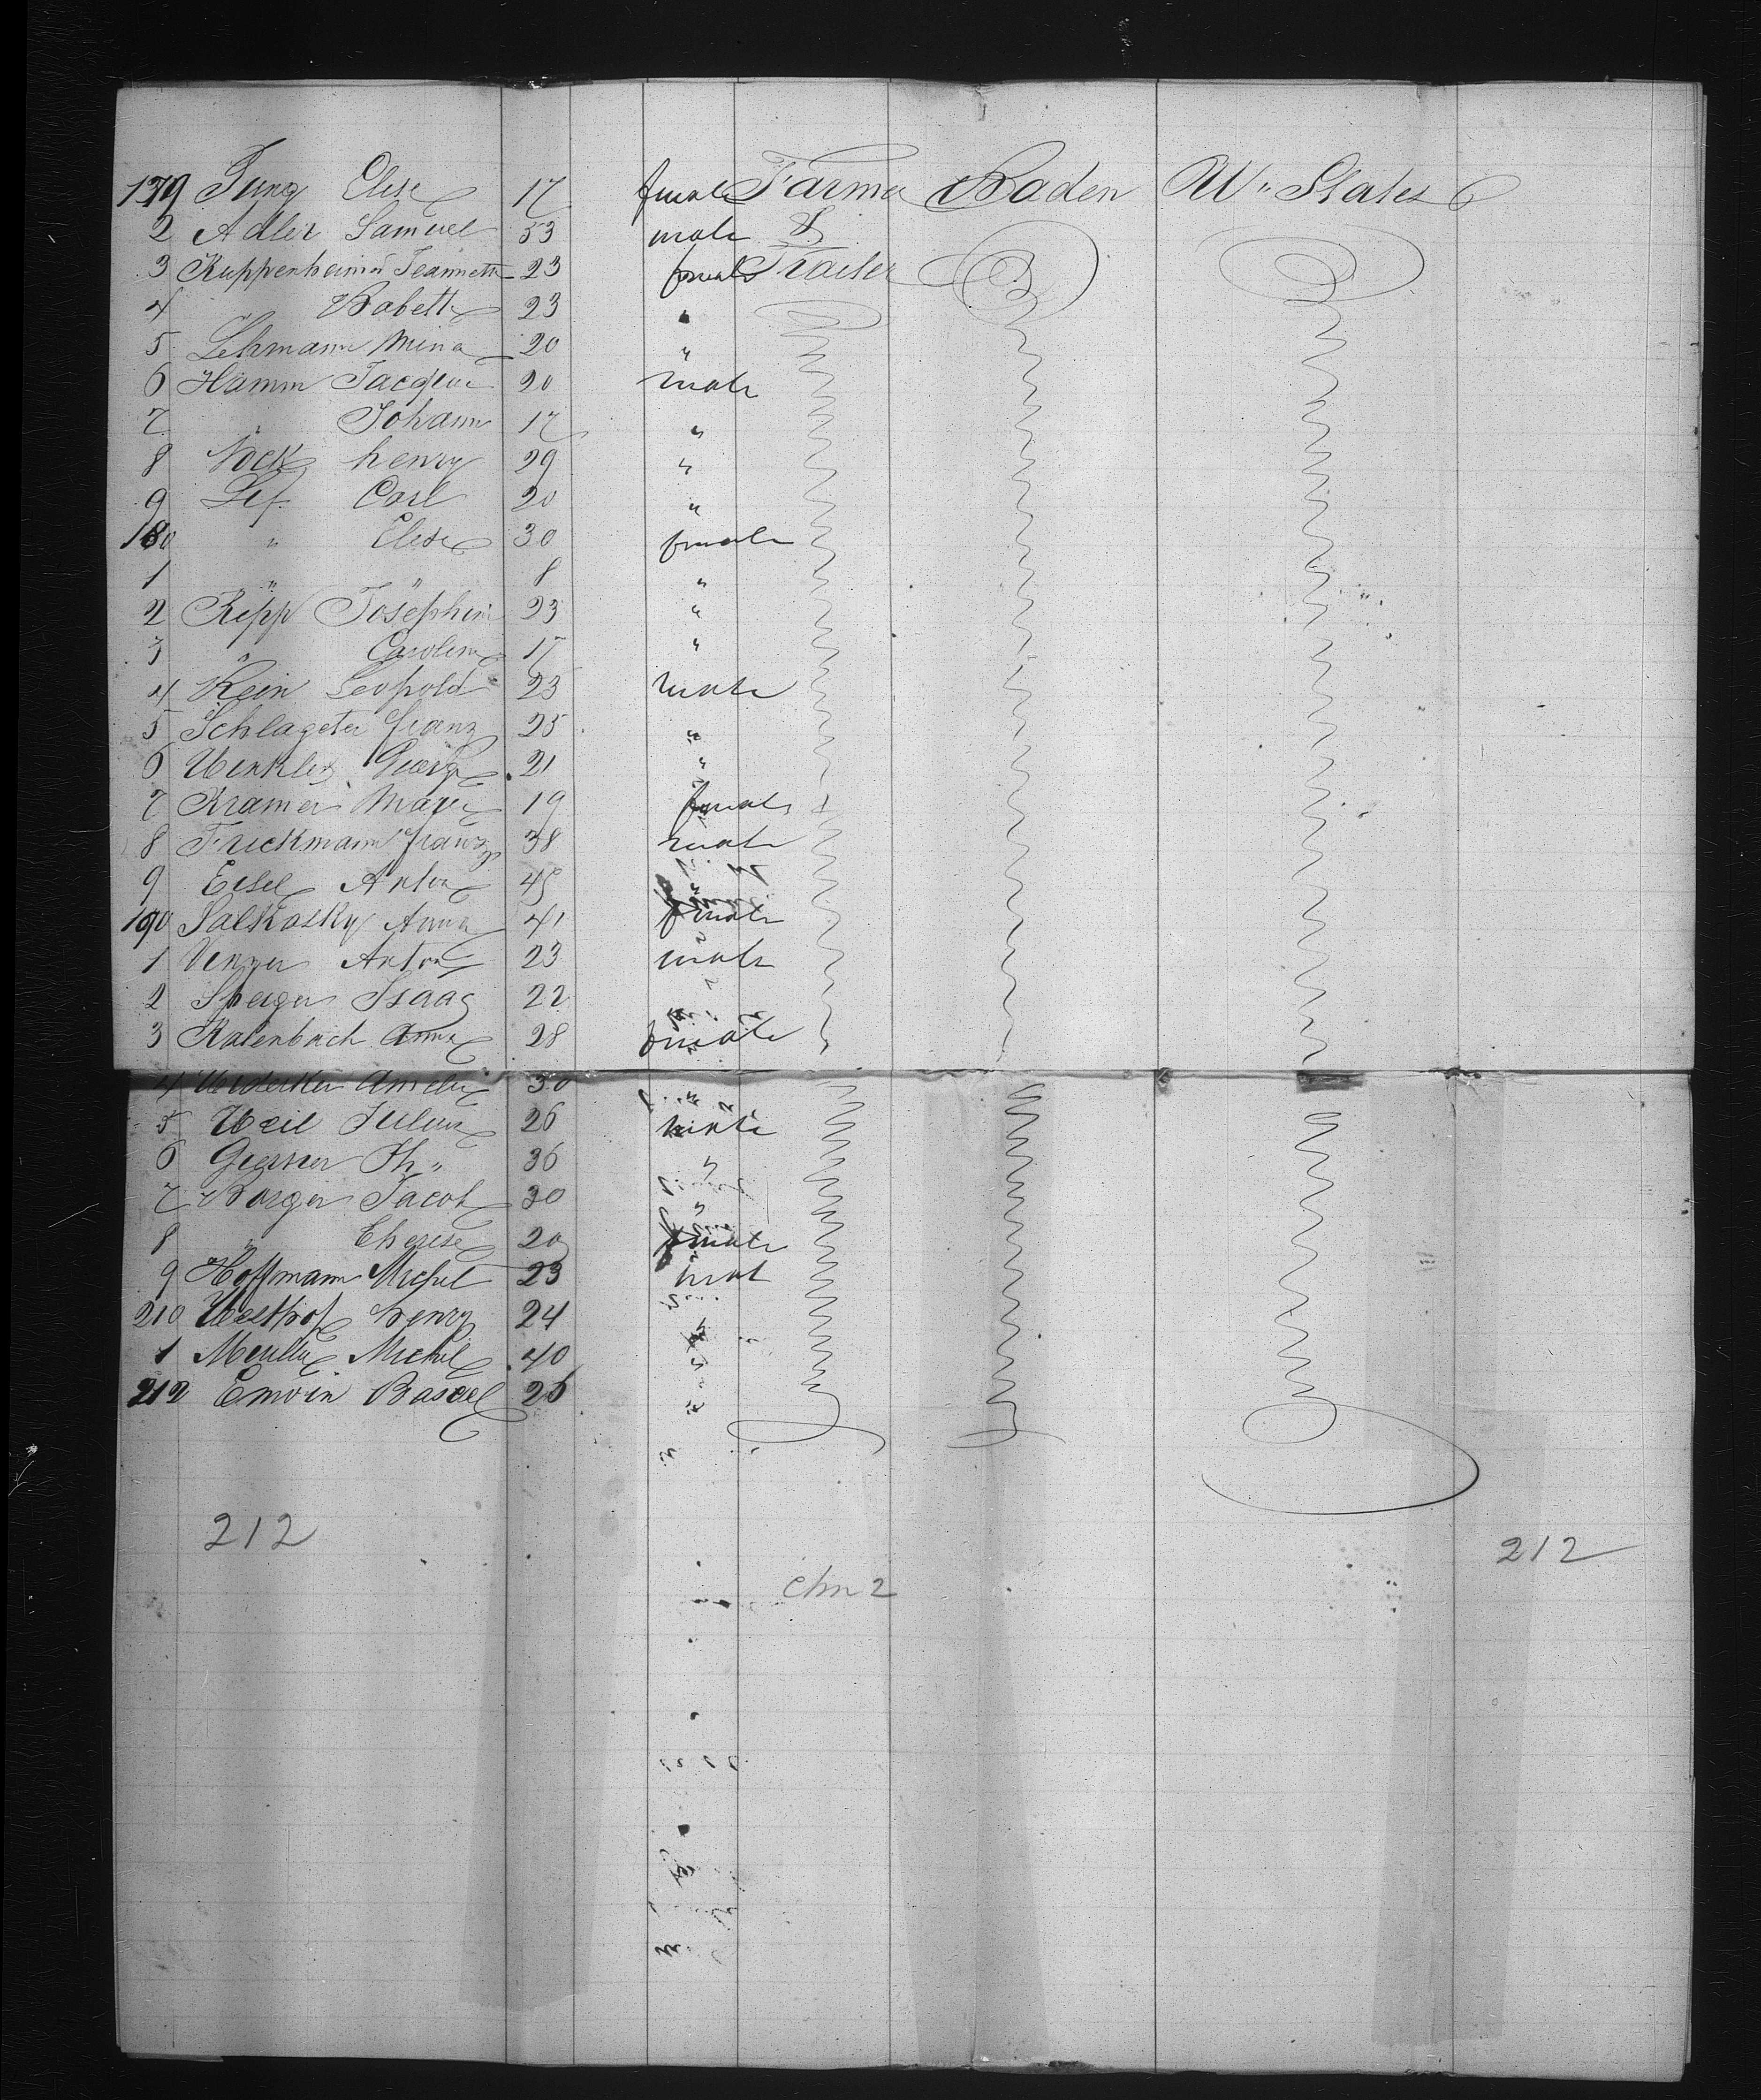 179 Jung Elise 17 female Farmer Baden U" States
2 Adler Samuel 53 male &
3 Kuppenheimer Jeannette 23 female Trader
4 " Babette 23 "
5 Lehmann Mina 20 "
6 Hamm Jacques 20 male
7 " Johann 17 "
8 Nock henry 29 "
9 Carl 20 "
180 " Elise 30 female
1 " " 8 "
2 Repp Josephine 23 "
3 " Caroline 17 "
4 Kein Leopold 23 male
5 Schlageter franz 25 "
6 Winkler Georg 21 "
7 Kramer 19 female
8 Frickmann franz 38 male
9 Eisel Anton 45 "
190 Salkosky Anna 41 female
1 Anton 23 male
2 Isaac 22
3 Kalenbach Anna 28 female
4 Amelie 30 "
5 Weil Julius 26 male
6 Th" 36 "
7 Borger Jacob 30 "
8 " Therese 20 female
9 Hoffmann Michel 23 male
210 Westhof henry 24 "
1 Michel 40 "
212 Emvin 26 "
212 212